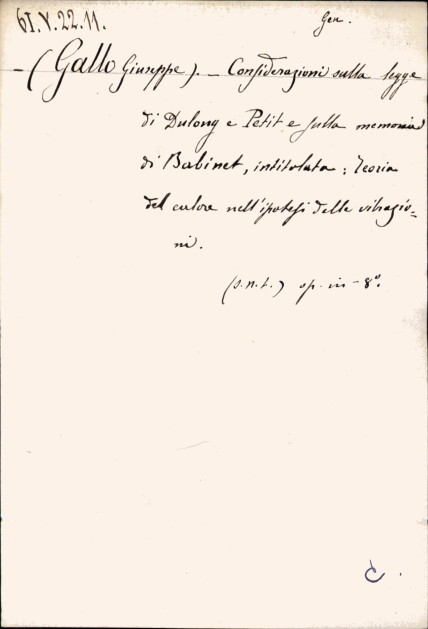 61.V.22.11.
Gen.
- (Gallo Giuseppe). - Considerazioni sulla legge
di Dulong e Petit e sulla memoria
di Babinet, intitolata: Teoria
del calore nell'ipotesi delle vibrazio=
ni.
(s.n.t.) op. in-8º.
C.